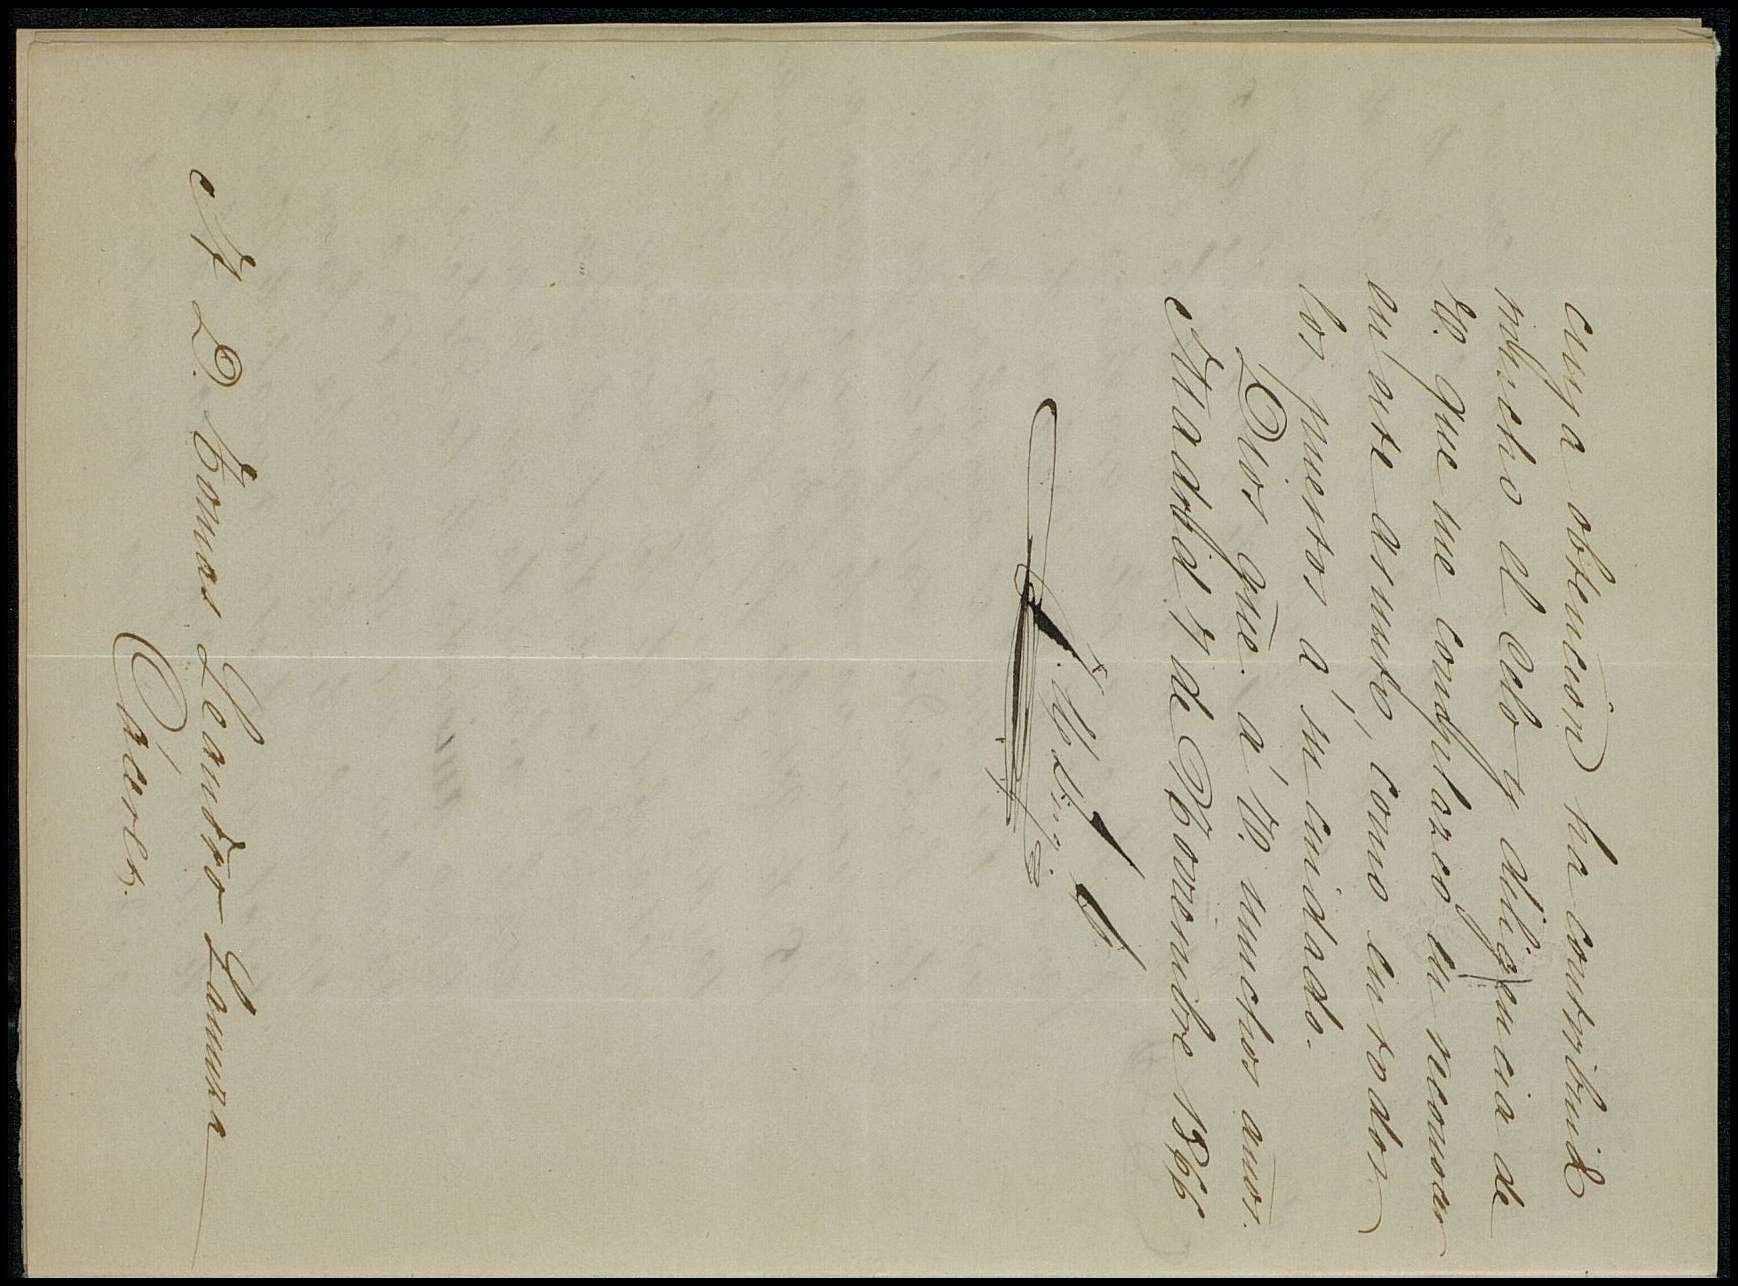 cuya obtencion ha contribuido
mucho el celo y diligencia de
V. que me complazco en reconocer
en este asunto, como en todos
los puestos á su cuidado.
Dios gue. á V. muchos años.
Madrid 7 de Noviembre 1866
A D. Tomas Leandro Lamura
Cáceres.